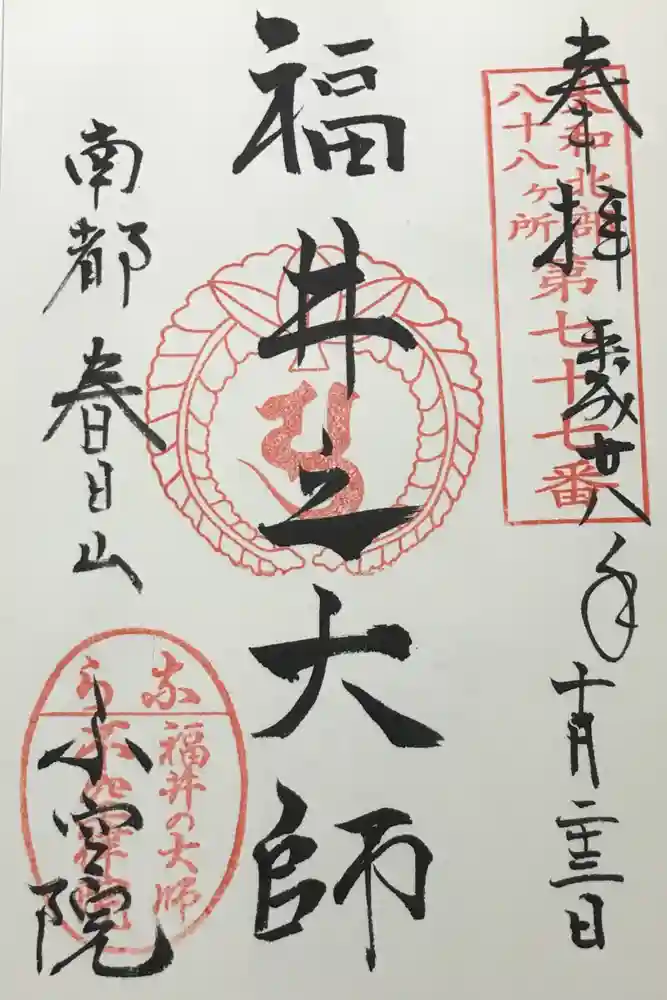 奉拝 平成廿八年十月二十三日
大和北部
八十八ヶ所
第七十七番
福井之大師
南都 春日山
不空院
なら
福井の大師